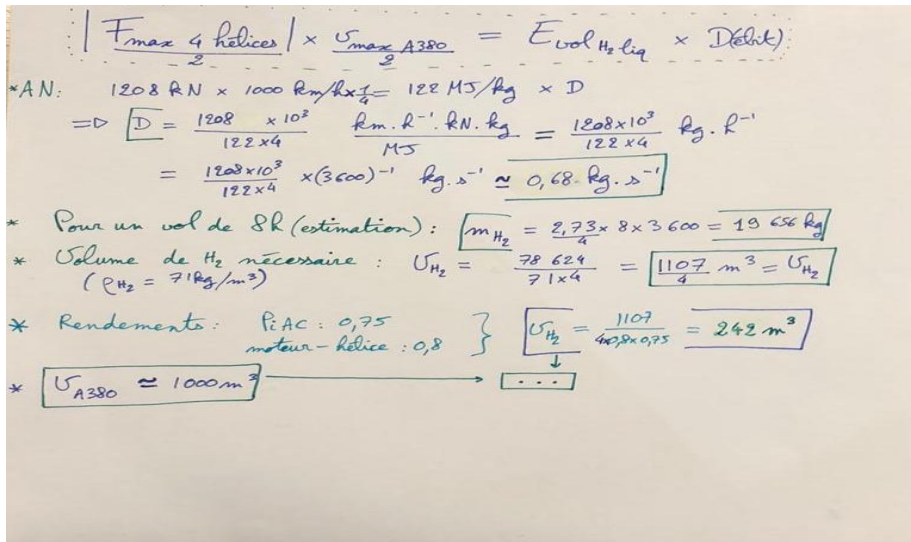 |F max 4 hélices|/2 × v max A380/2 = E vol H2 liq × D(ébit)
*AN: 1208 kN × 1000 km/h × 1/4 = 122 MJ/kg × D
=> D = 1208 × 10³/122×4 km.h⁻¹.kN.kg/MJ = 1208×10³/122×4 kg.h⁻¹
= 1208×10³/122×4 ×(3600)⁻¹ kg.s⁻¹ ≃ 0,68 kg.s⁻¹
* Pour un vol de 8h (estimation) : m H2 = 2,73/4 × 8 × 3600 = 19 656 kg
* Volume de H2 nécessaire : V H2 = 78 624/71×4 = 1107/4 m³ = V H2
(ρ H2 = 71kg/m³)
* Rendements : PiAC : 0,75
moteur-hélice : 0,8 } V H2 = 1107/4×0,8×0,75 = 242 m³
* V A380 ≃ 1000 m³ → ...